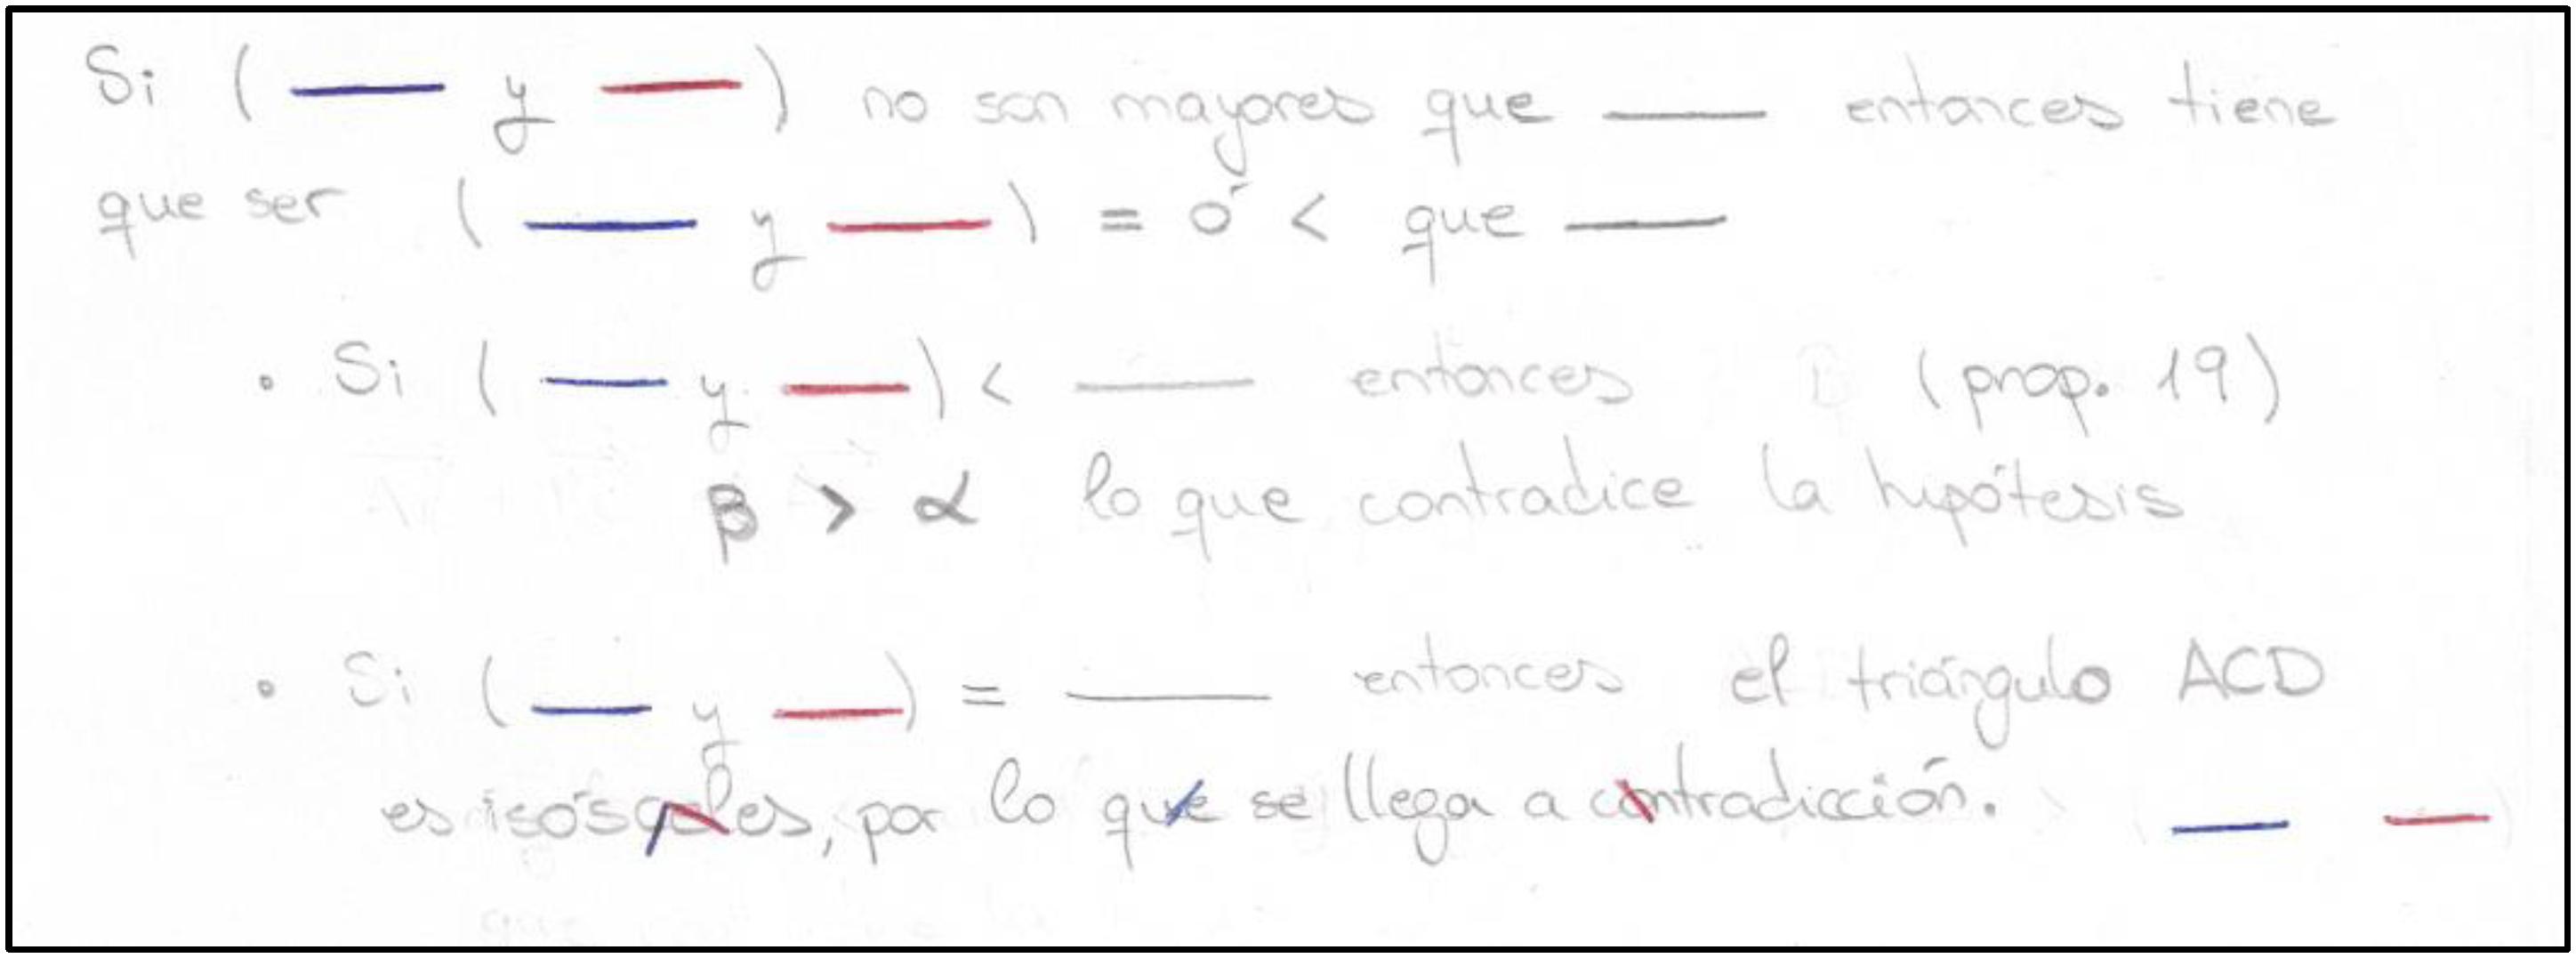 Si ( — y — ) no son mayores que — entonces tiene
que ser ( — y — ) = ó < que —
• Si ( — y — ) < — entonces (prop. 19)
β > α lo que contradice la hipótesis
• Si ( — y — ) = — entonces el triángulo ACD
es isósceles, por lo que se llega a contradicción. — —